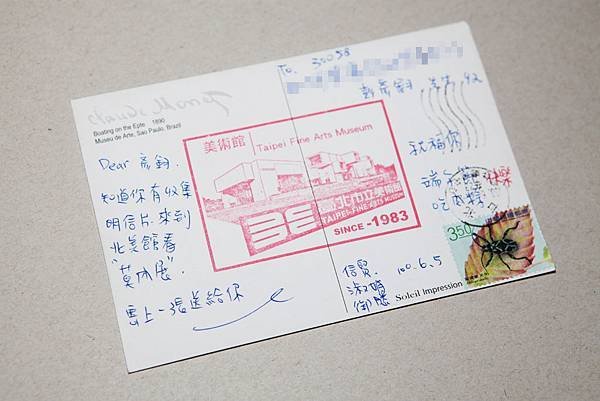 Claude Monet
Boating on the Epte 1890
Museu de Arte, Sao Paulo, Brazil
Dear 彥鈞.
知道你有收集
明信片. 來到
北美館看
"莫內展".
馬上一張送給你
美術館 | Taipei Fine Arts Museum
臺北市立美術館
TAIPEI FINE ARTS MUSEUM
SINCE -1983
To. 30058
收
祝福你
端午節快樂
吃肉粽
350
信賢.
淑晴
100.6.5
Soleil Impression